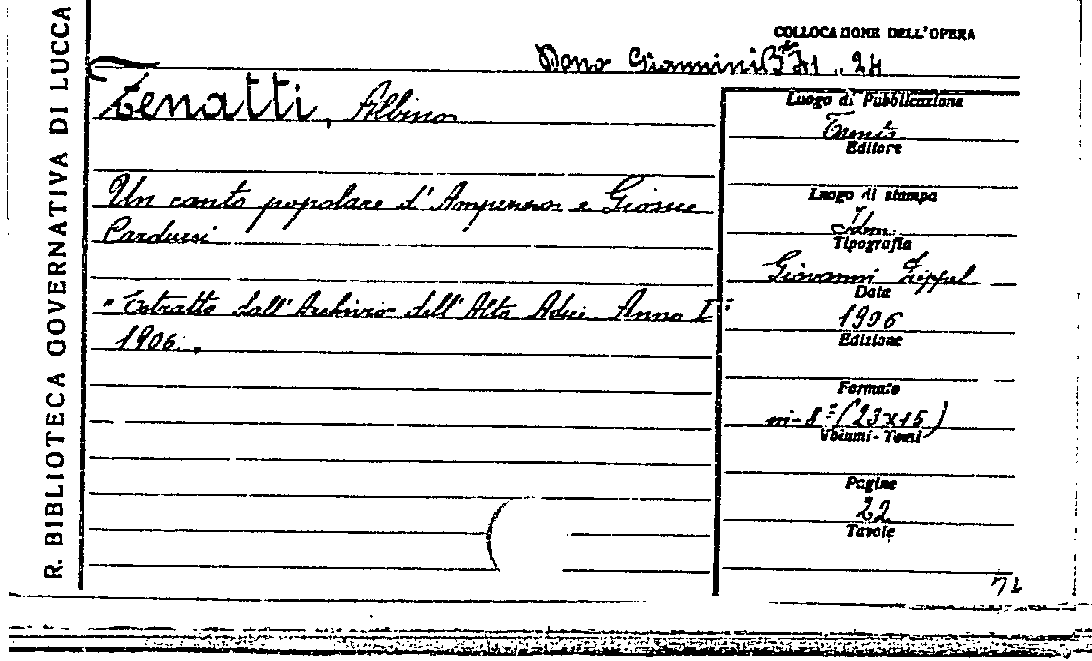 R. BIBLIOTECA GOVERNATIVA DI LUCCA
COLLOCAZIONE DELL'OPERA
Dono Giannini
Zenatti, Albino
Un canto popolare d'Ampezzo e Giosue
Carducci
"Estratto dall'Archivio dell'Alto Adige Anno I°
1906."
Luogo di Pubblicazione
Trento
Editore
Luogo di stampa
Idem
Tipografia
Giovanni Zippel
Data
1906
Edizione
Formato
in-8° (23x15)
Volumi - Tomi
Pagine
22
Tavole